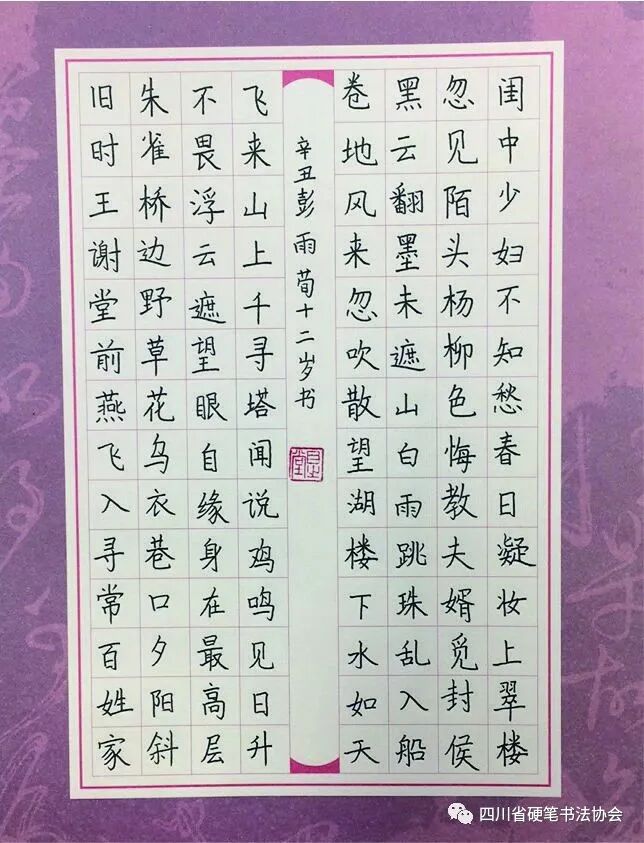 闺中少妇不知愁春日凝妆上翠楼
忽见陌头杨柳色悔教夫婿觅封侯
黑云翻墨未遮山白雨跳珠乱入船
卷地风来忽吹散望湖楼下水如天
辛丑彭雨荀十二岁书
飞来山上千寻塔闻说鸡鸣见日升
不畏浮云遮望眼自缘身在最高层
朱雀桥边野草花乌衣巷口夕阳斜
旧时王谢堂前燕飞入寻常百姓家
四川省硬笔书法协会